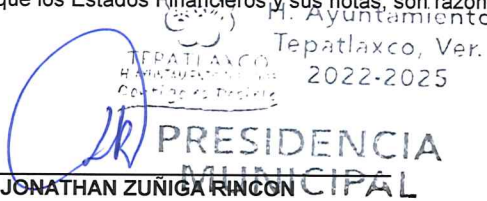 que los Estados Financieros y sus notas, son razon
H. Ayuntamiento
Tepatlaxco, Ver.
TEPATLAXCO
2022-2025
PRESIDENCIA
MUNICIPAL
JONATHAN ZUÑIGA RINCON